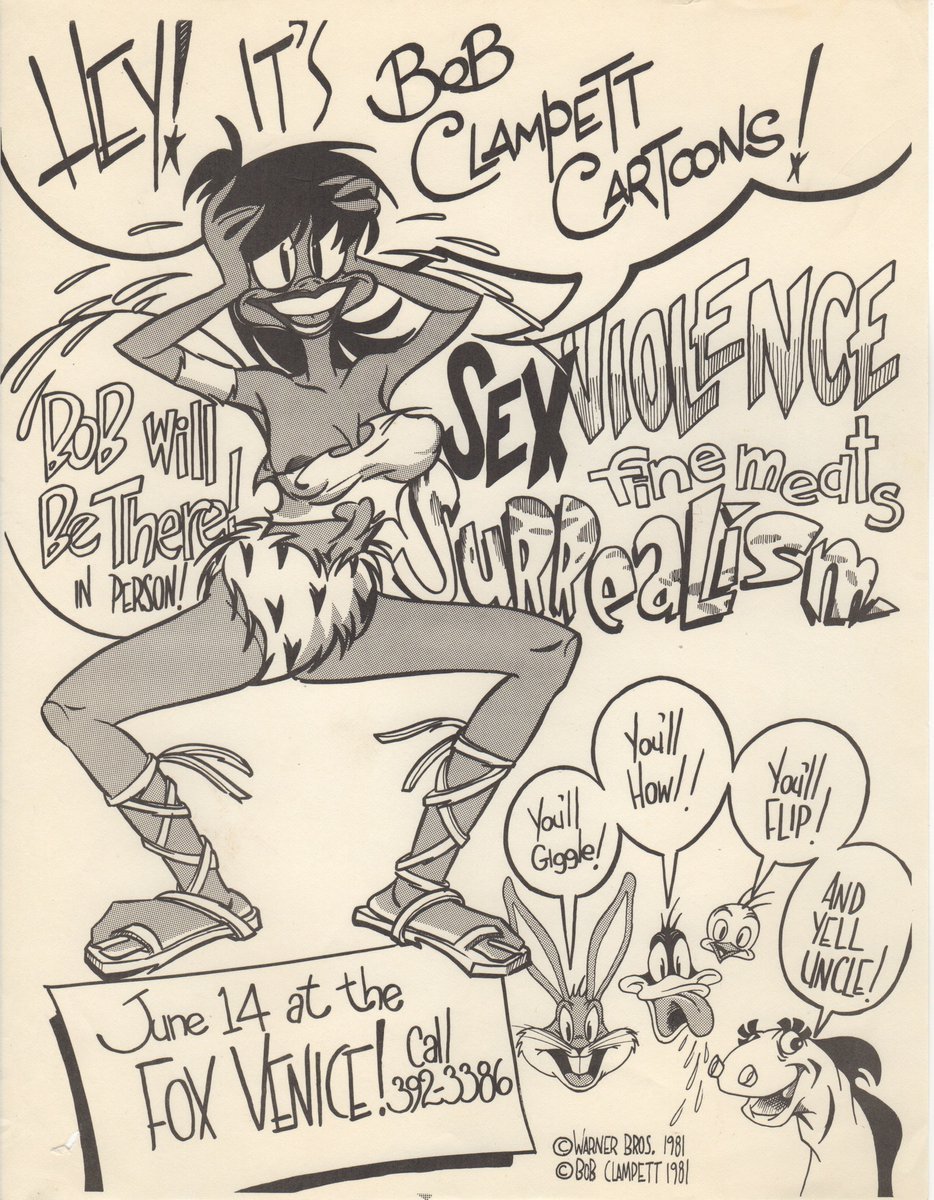 HEY! IT'S BOB
CLAMPETT
CARTOONS!
BOB Will
Be THere!
IN PERSON!
SEX VIOLENCE
fine meats
SURRealism
You'll
Giggle!
You'll
HOWL!
You'll
FLIP!
AND
YELL
UNCLE!
June 14 at the
FOX VENICE!
Call
392-3386
©WARNER BROS. 1981
©BOB CLAMPETT 1981